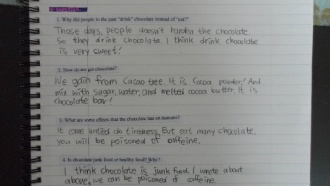 1. Why did people in the past "drink" chocolate instead of "eat?"
Those days, people doesn't harden the chocolate.
So they drink chocolate. I think drink chocolate
is very sweet!
2. How do we get chocolate?
We gain from Cacao tree. It is Cocoa powder. And
mix with sugar, water, and melted cocoa butter. It is
chocolate bar!
3. What are some effects that the chocolate has on humans?
It can tiredness. But eat many chocolate,
you will be poisoned of caffeine.
4. Is chocolate junk food or healthy food? Why?
I think chocolate is junk food. I wrote about
above, we can be poisoned of caffeine.